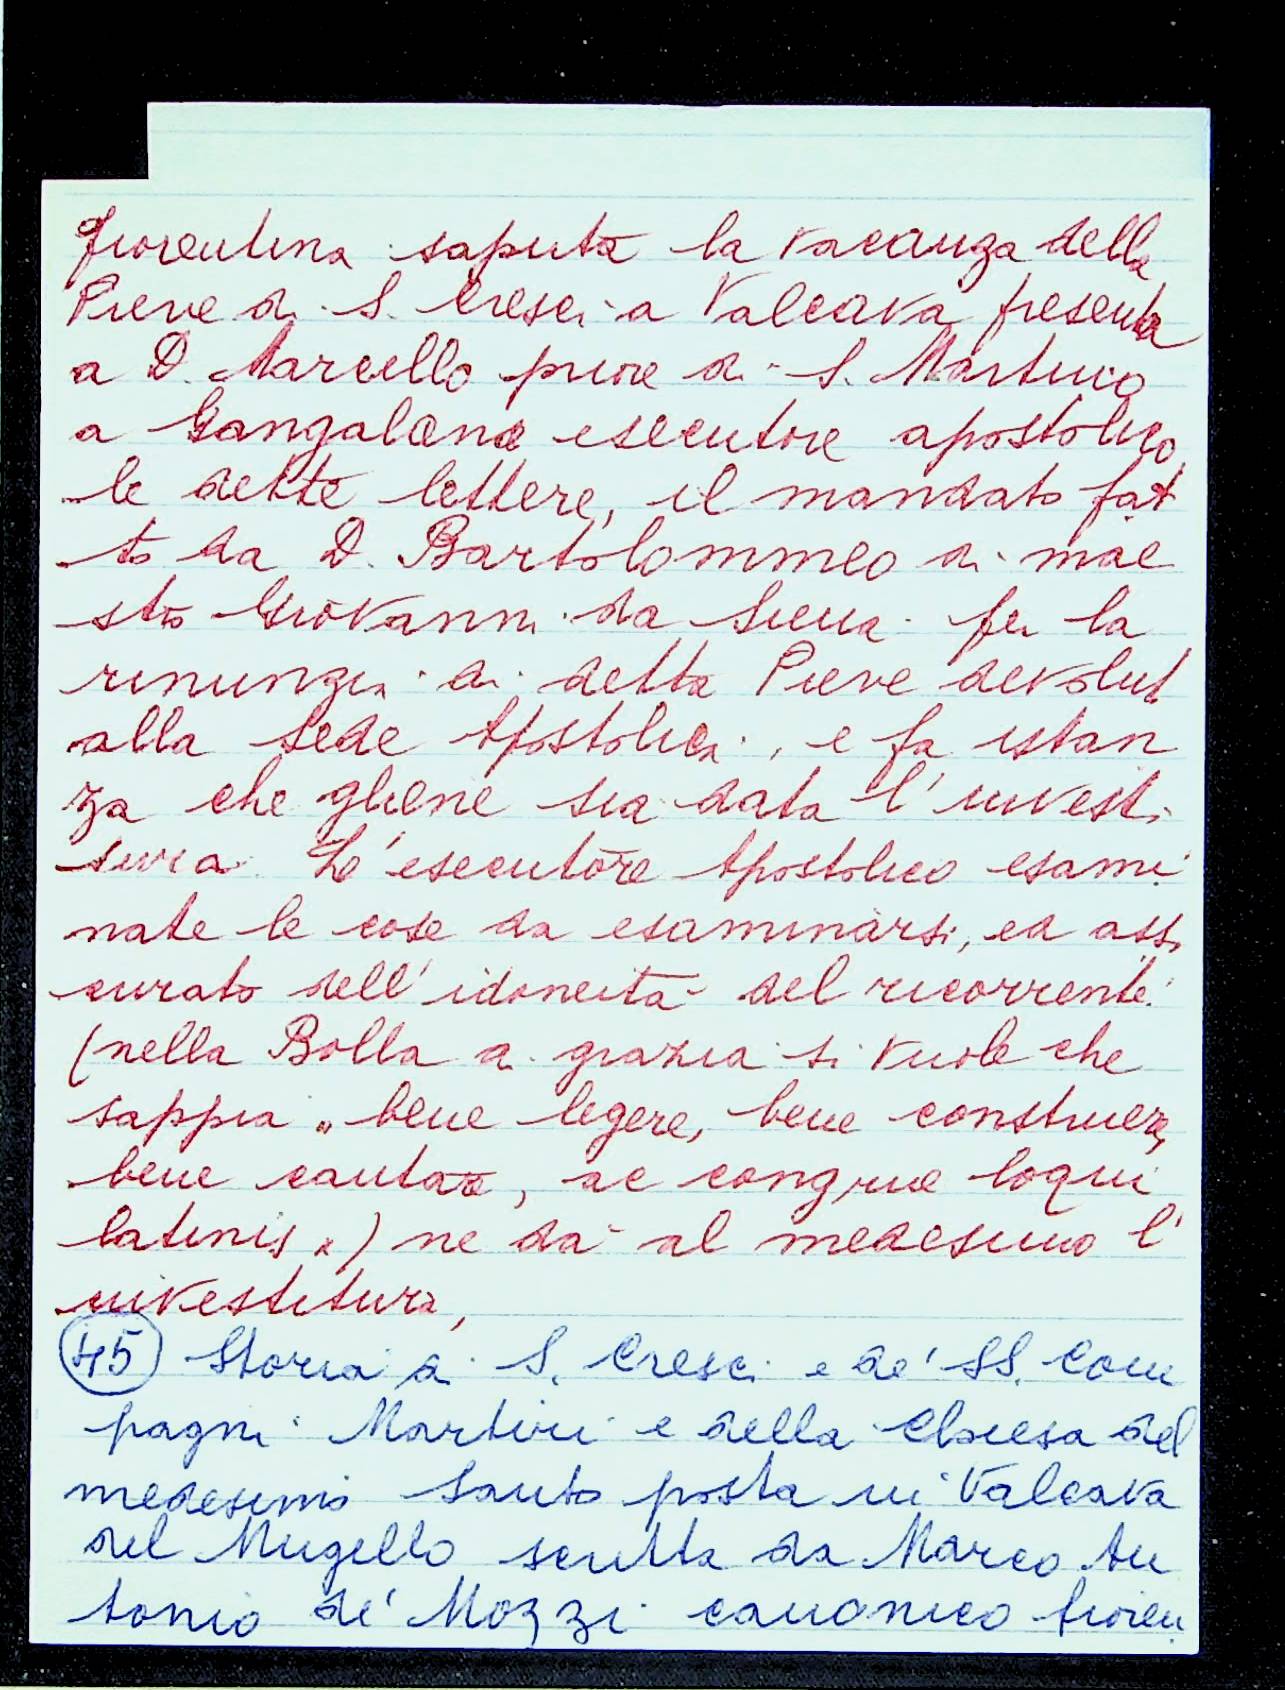 fiorentina saputa la vacanza della
Pieve di S. Cresci a Valcava presenta
a D. Marcello priore di S. Martino
a Gangalandi esecutore apostolico
le dette lettere, il mandato fat
to da D. Bartolommeo di mae
stro Giovanni da Siena per la
rinunzia di detta Pieve devolut
alla Sede Apostolica, e fa istan
za che gliene sia data l'investi
tura. L'esecutore Apostolico esami
nate le cose da esaminarsi, ed assi
curato dell'idoneità del ricorrente
(nella Bolla di grazia si vuole che
sappia "bene legere, bene construere,
bene cantare, ac congrue loqui
latinis") ne dà al medesimo l'
investitura,
45 Storia di S. Cresci e de' SS. Com
pagni Martiri e della Chiesa del
medesimo Santo posta in Valcava
del Mugello scritta da Marco An
tonio de' Mozzi canonico fioren